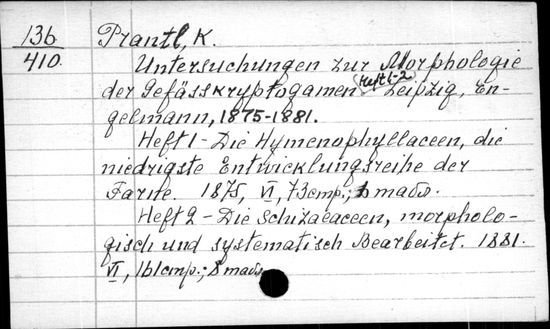 136
410.
Prantl, K.
Untersuchungen zur Morphologie
der Gefässkryptogamen Heft 1-2 Leipzig, En-
gelmann, 1875-1881.
Heft 1 - Die Hymenophyllaceen, die
niedrigste Entwicklungsreihe der
Farne. 1875, VI, 73 стр.; 6 табл.
Heft 2 - Die Schizaeaceen, morpholo-
gisch und systematisch Bearbeitet. 1881.
VI, 161 стр.; 8 табл.